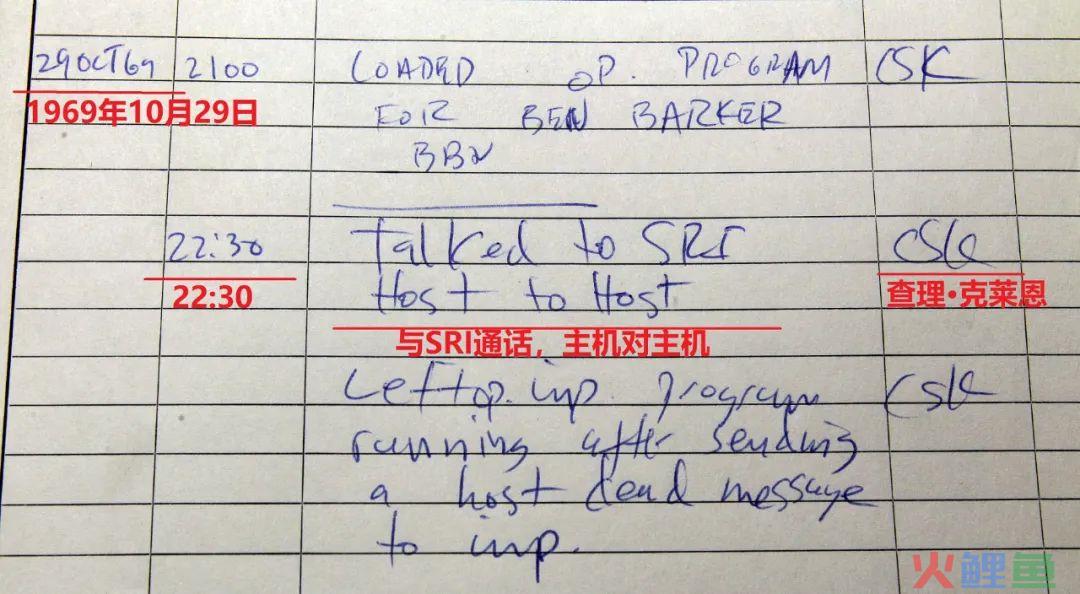 29OCT69 2100 LOADED OP. PROGRAM CSK
1969年10月29日
FOR BEN BARKER
BBN
22:30 Talked to SRI CSK
22:30
Host to Host
查理·克莱恩
与SRI通话，主机对主机
Left op. imp. program CSK
running after sending
a host dead message
to imp.
火鲤鱼